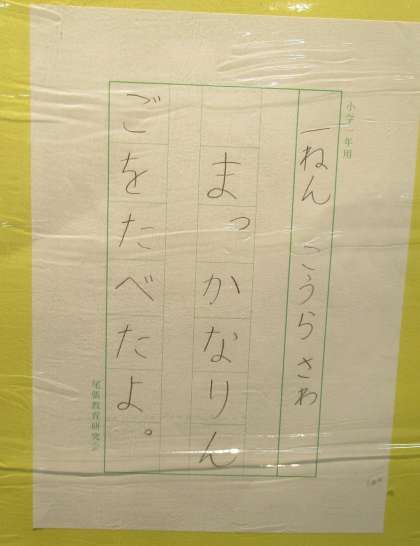 小学一年用
一ねん こうらさわ
まっかなりん
ごをたべたよ。
尾張教育研究会